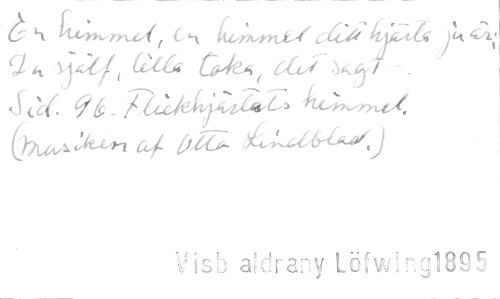 En himmel, en himmel ditt hjärta ju är;
Du själf, lilla toka, det sagt.
Sid. 96. Flickhjärtats himmel.
(Musiken af Otto Lindblad.)
Visb aldrany Löfwing1895